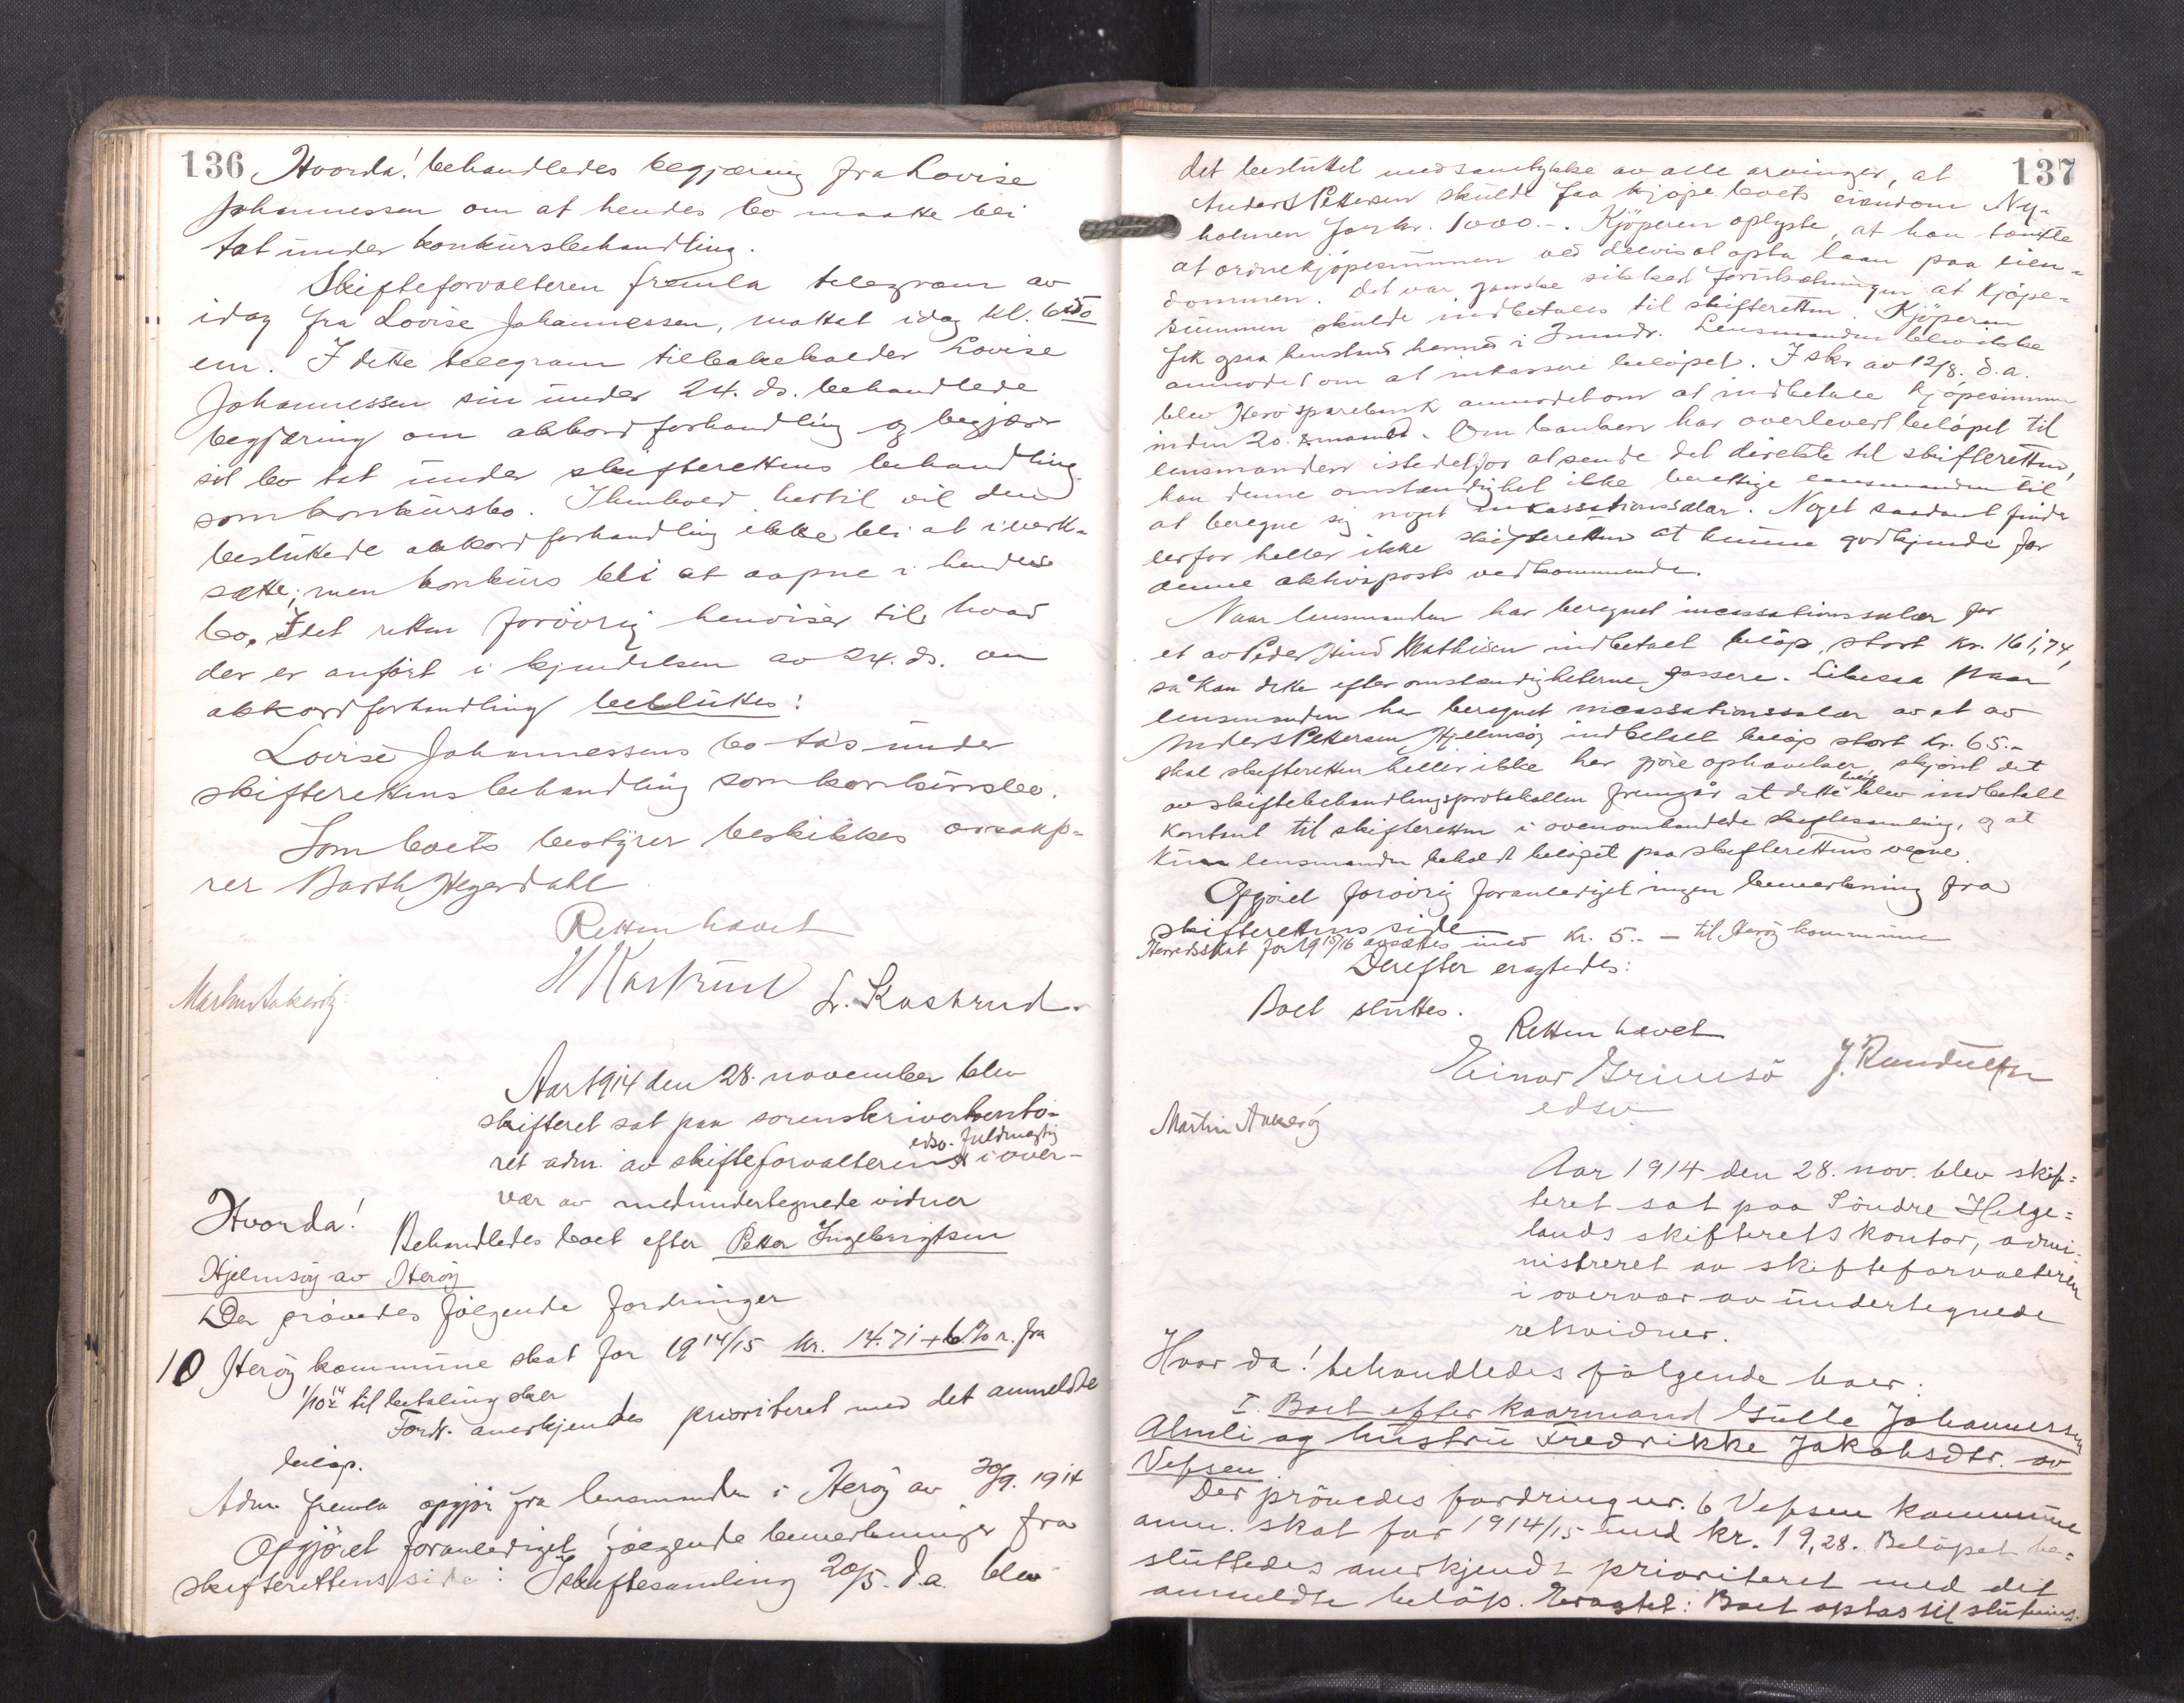 136
Hvorda! behandledes begjæring fra Lovise
Johannessen om at hendes bo maatte bli
tat under konkursbehandling.
Skifteforvalteren fremla telegram av
idag fra Lovise Johannessen, mottat idag kl. 6 50
em. I dette telegram tilbakekalder Lovise
Johannessen sin under 24. ds. behandlede
begjæring om akkordforhandling og begjærer
sit bo tat under skifterettens behandling
som konkursbo. I henhold hertil vil den
besluttede akkordforhandling ikke bli at iverk-
sætte; men konkurs bli at aapne i hendes
bo. Idet retten forøvrig henviser til hvad
der er anført i kjendelsen av 24. ds. om
akkordforhandling besluttes:
Lovise Johannessens bo tas under
skifterettens behandling som konkursbo.
Som boets bestyrer beskikkes orsakfø-
rer Barth Hegerdahl
Retten hævet
H Kastrud L. Kastrud.
Aar 1914 den 28. november blev
skifteret sat paa sorenskriverkonto-
ret adm. av skifteforvalterens edsv. fuldmægtig i over-
vær av medundertegnede vidner
Hvorda!
Behandledes boet efter Petter Ingebrigtsen
Hjelmsøy av Herøy
Der prøvedes følgende fordringer
10 Herøy kommune skat for 1914/15 kr. 14.71 + 6% r. fra
1/10 14 til betaling sker
Fordr. anerkjendes prioritert med det anmeldte
beløp.
Adm. fremla opgjør fra lensmanden i Herøy av 30/9. 1914
Opgjøret foranlediget følgende bemerkninger fra
skifterettens side: I skiftesamling 20/5. d.a. blev
137
det besluttet med samtykke av alle arvinger, at
Anders Pettersen skulde faa kjøpe boets eiendom Ny-
holmen for kr. 1000.-. Kjøperen oplyste, at han tænkte
at ordne kjøpesummen ved delvis at opta laan paa eien-
dommen. Det var ganske sikkert forutsætningen at kjøpe-
summen skulde indbetales til skifteretten. Kjøperen
fik gaa henstand hermed i 3 mndr. Lensmanden blev ikke
anmodet om at inkassere beløpet. I skr. av 12/8. d.a.
blev Herø sparebank anmodet om at indbetale kjøpesummen
inden 20. s. maaned. Om banken har overlevert beløpet til
lensmanden istedetfor at sende det direkte til skifteretten,
kan denne omstændighet ikke berettige lensmanden til
at beregne sig noget inkassationssalær. Noget saadant finder
derfor heller ikke skifteretten at kunne godkjende for
denne aktivaposts vedkommende.
Naar lensmanden har beregnet incassationssalær for
et av Peder Hind Mathisen indbetalt beløp, stort kr. 161,74,
så kan dette efter omstændigheterne passere. Likesaa Naar
lensmanden har beregnet incassationssalær av et av
Anders Pettersen Hjelmsøy indbetalt beløp stort kr. 65.-
skal skifteretten heller ikke her gjøre ophævelser, skjønt det
av skiftebehandlingsprotokollen fremgår at dette beløp blev indbetalt
kontant til skifteretten i ovenomhandlede skiftesamling, og at
kun lensmanden beholdt beløpet paa skifterettens vegne.
Opgjøret forøvrig foranlediget ingen bemerkning fra
skifterettens side
Herredsskat for 1915/16 avsættes med kr. 5.- til Herøy kommune
Derefter eragtedes:
Boet sluttes.
Retten hævet
Einar Grimsø J. Randulfsen
edsv
Martin Aakerøy
Aar 1914 den 28. nov. blev skif-
teret sat paa Söndre Helge-
lands skifterets kontor, admi-
nistreret av skifteforvalteren
i overvær av undertegnede
retsvidner.
Hvor da! behandledes følgende boer:
I. Boet efter kaarmand Gulle Johannersen
Almli og hustru Fredrikke Jakobsdtr. av
Vefsen.
Der prövedes fordring nr. 6 Vefsen kommune
anm. skat for 1914/15 med kr. 19,28. Belöpet be-
sluttedes anerkjendt prioriteret med det
anmeldte belöp. Eragtet: Boet optas til slutning.